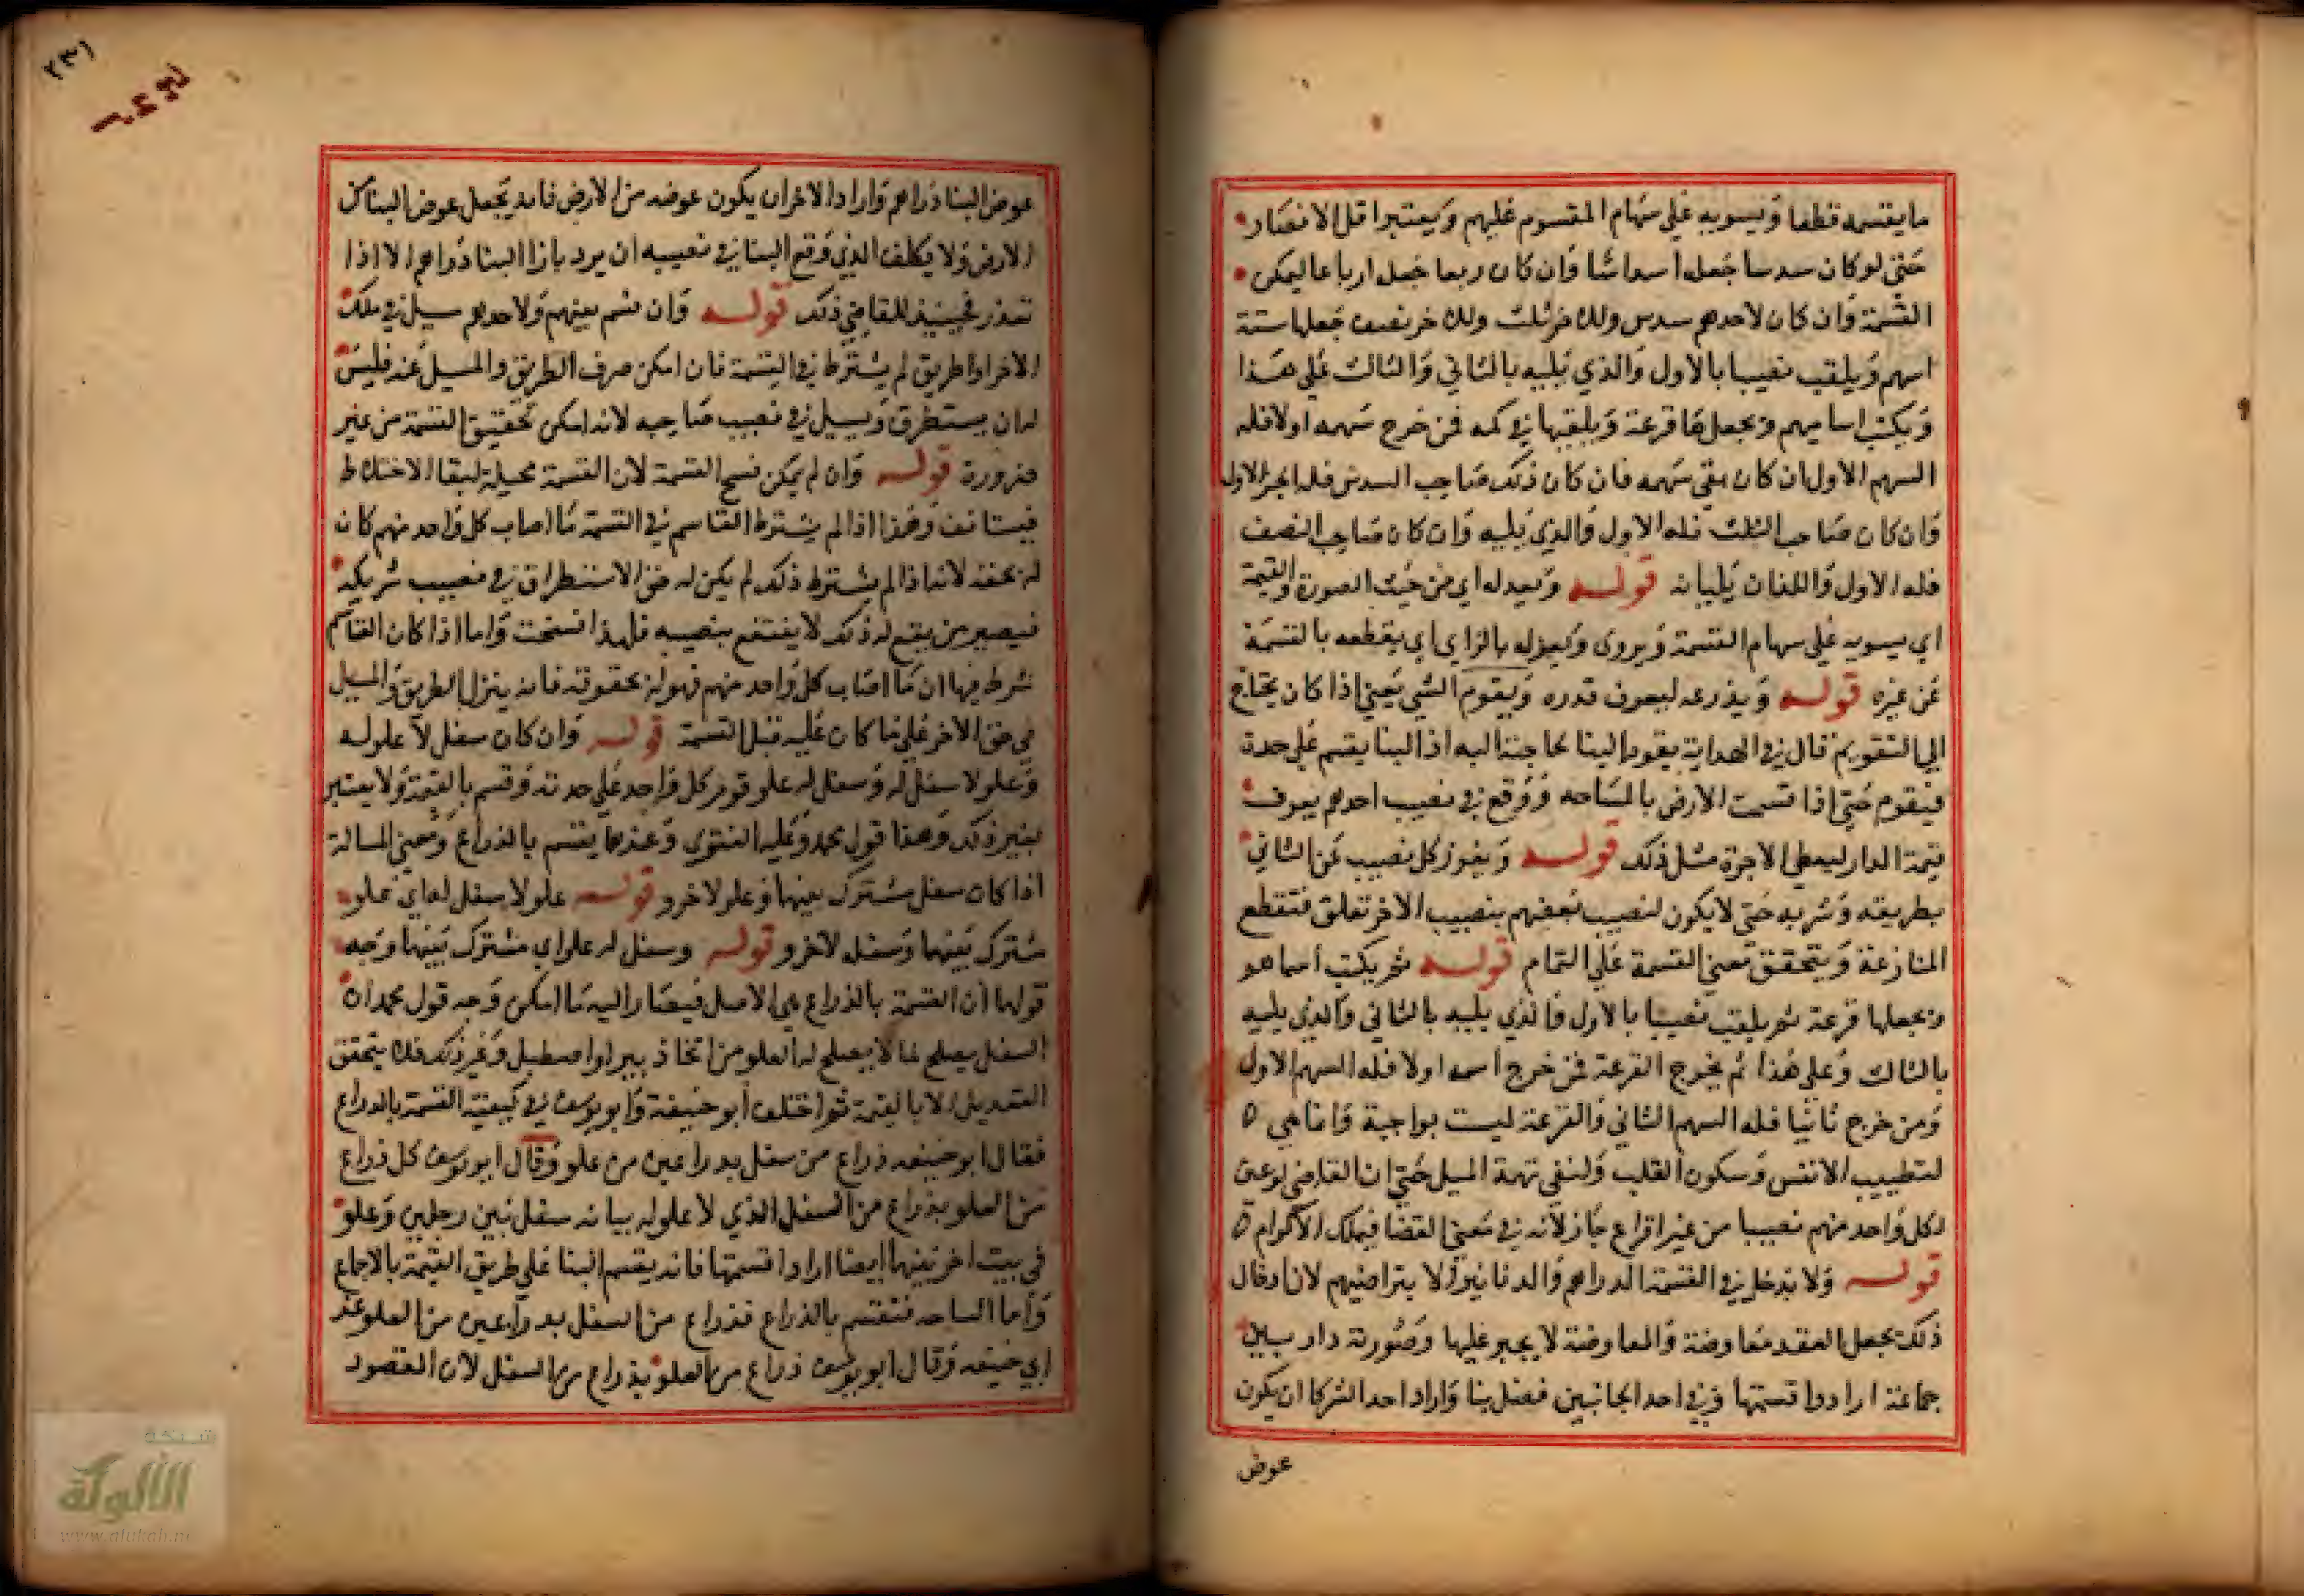 ما يقسمه قطعا ويسويه علي سهام المقسوم عليهم ويعتبر اقل الانصبا
حتي لو كان سدسا جعل اسداسا وان كان ربعا جعل ارباعا ليمكن
القسمة وان كان لاحدهم سدس ولاخر ثلث ولاخر نصف جعلها ستة
اسهم ويلقب نصيبا بالاول والذي يليه بالثاني والثالث علي هذا
ويكتب اساميهم ويجعلها قرعة ويلقيها في كمه فمن خرج سهمه اولا فله
السهم الاول ان كان يفي سهمه فان كان ذلك صاحب السدس فله الجز الاول
وان كان صاحب الثلث فله الاول والذي يليه وان كان صاحب النصف
فله الاول واللذان يليانه قوله ويعدله اي من حيث الصورة والقيمة
اي يسويه علي سهام القسمة ويروي ويعزله بالزاي اي يقطعه بالقسمة
عن غيره قوله ويذرعه ليعرف قدره ويقوم الشي يعني اذا كان يحتاج
الي التقويم قال في الهداية يقوم البنا لحاجته اليه اذ البنا يقسم علي حدة
فيقوم حتي اذا قسمت الارض بالمساحه ووقع في نصيب احدهم يعرف
قيمة الدار ليعطي الاجرة مثل ذلك قوله ويفرز كل نصيب عن الثاني
بطريقه وشربه حتي لا يكون لنصيب بعضهم بنصيب الاخر تعلق فتقطع
المنازعة ويتحقق معني القسمة علي التمام قوله ثم يكتب اسماهم
ويجعلها قرعة ثم يلقب نصيبا بالاول والذي يليه بالثاني والذي يليه
بالثالث وعلي هذا ثم يخرج القرعة فمن خرج اسمه اولا فله السهم الاول
ومن خرج ثانيا فله السهم الثاني والقرعة ليست بواجبة وانما هي
لتطييب الانفس وسكون القلب ولنفي تهمة الميل حتي ان القاضي لو عين
لكل واحد منهم نصيبا من غير اقراع جاز لانه في معني القضا فيملك الالزام
قوله ولا يدخل في القسمة الدراهم والدنانير الا بتراضيهم لان ادخال
ذلك يجعل العقد معاوضة والمعاوضة لا يجبر عليها وصورته دار بين
جماعة ارادوا قسمتها وفي احد الجانبين فضل بنا واراد احد الشركا ان يكون
عوض
٢٣١
عوض البنا دراهم واراد الاخر ان يكون عوضه من الارض فانه يجعل عوض البنا من
الارض ولا يكلف الذي وقع البنا في نصيبه ان يرد بازا البنا دراهم الا اذا
تعذر فحينيذ للقاضي ذلك قوله وان قسم بينهم ولاحدهم سيل في ملك
الاخر او طريق لم يشترط في القسمة فان امكن صرف الطريق والمسيل عنه فليس
له ان يستطرق ويسيل في نصيب صاحبه لانه امكن تحقيق القسمة من غير
ضرورة قوله وان لم يمكن فسخ القسمة لان القسمة محيلة لبقا الاختلاط
فيستانف وهذا اذا لم يشترط القاسم في القسمة ما اصاب كل واحد منهم كان
له بحقه لانه اذا لم يشترط ذلك لم يكن له حق الاستطراق في نصيب شريكه
فيصير من يقع له ذلك لا ينتفع بنصيبه فلهذا انفسخت واما اذا كان القاسم
شرط فيها ان ما اصاب كل واحد منهم فهو له بحقوقه فانه ينزل الطريق والمسيل
في حق الاخر علي ما كان عليه قبل القسمة قوله وان كان سفل لا علو له
وعلو لا سفل له وسفل له علو قوم كل واحد علي حدته وقسم بالقيمة ولا يعتبر
بغير ذلك وهذا قول محمد وعليه الفتوي وعندهما يقسم بالذراع ومعني المسالة
اذا كان سفل مشترك بينهما وعلو لاخر وقوله علو لا سفل له اي علو
مشترك بينهما وسفله لاخر وقوله وسفل له علو اي مشترك بينهما وجه
قولهما ان القسمة بالذراع هي الاصل فيصار اليه ما امكن وجه قول محمد ان
السفل يصلح لما لا يصلح له العلو من اتخاذ بير او اصطبل وغير ذلك فلا يتحقق
التعديل الا بالقيمة ثم اختلف ابو حنيفة وابو يوسف في كيفية القسمة بالذراع
فقال ابو حنيفه ذراع من سفل بدراعين من علو وقال ابو يوسف كل ذراع
من العلو بذراع من السفل الذي لا علو له بيانه سفل بين رجلين وعلو
في بيت اخر بينهما ايضا ارادا قسمتها فانه يقسم البنا علي طريق القيمة بالاجماع
واما الساحه فتقسم بالذراع فذراع من السفل بدراعين من العلو عند
ابي حنيفه وقال ابو يوسف ذراع من العلو بذراع من السفل لان المقصود
شبكة
الألوكة
www.alukah.net